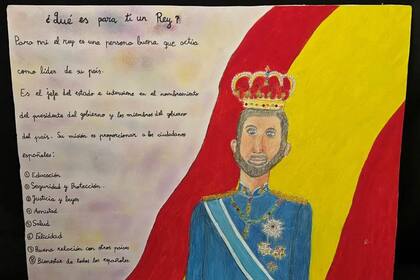 ¿Qué es para ti un Rey?
Para mi el rey es una persona buena que actúa
como líder de su país.
Es el jefe del estado e interviene en el nombramiento
del presidente del gobierno y los miembros del gobierno
del país. Su misión es proporcionar a los ciudadanos
españoles:
① Educación
② Seguridad y Protección.
③ Justicia y leyes
④ Amistad
⑤ Salud
⑥ Felicidad
⑦ Buena relación con otros países
⑧ Bienestar de todos los españoles